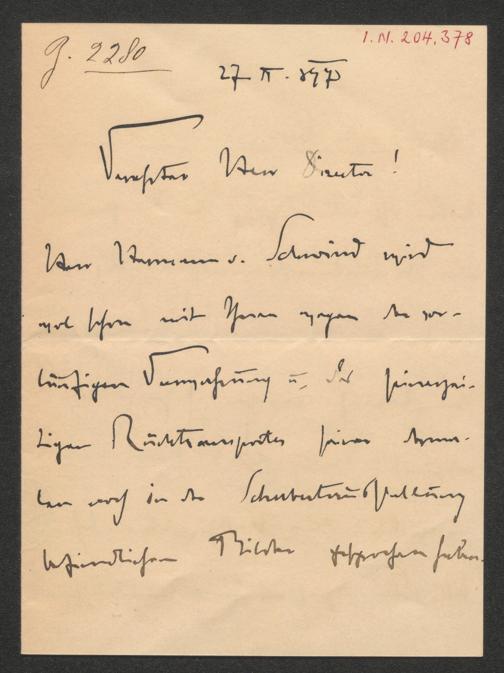 J. 2280
I.N. 204.378
27 II. 1897
Verehrter Herr Director!
Herr Hermann v. Schwind wird
wol schon mit Ihnen wegen der vor-
läufigen Verwahrung u. des seinerzei-
tigen Rücktransportes seiner derma-
len noch in der Schubertausstellung
befindlichen Bilder gesprochen haben.